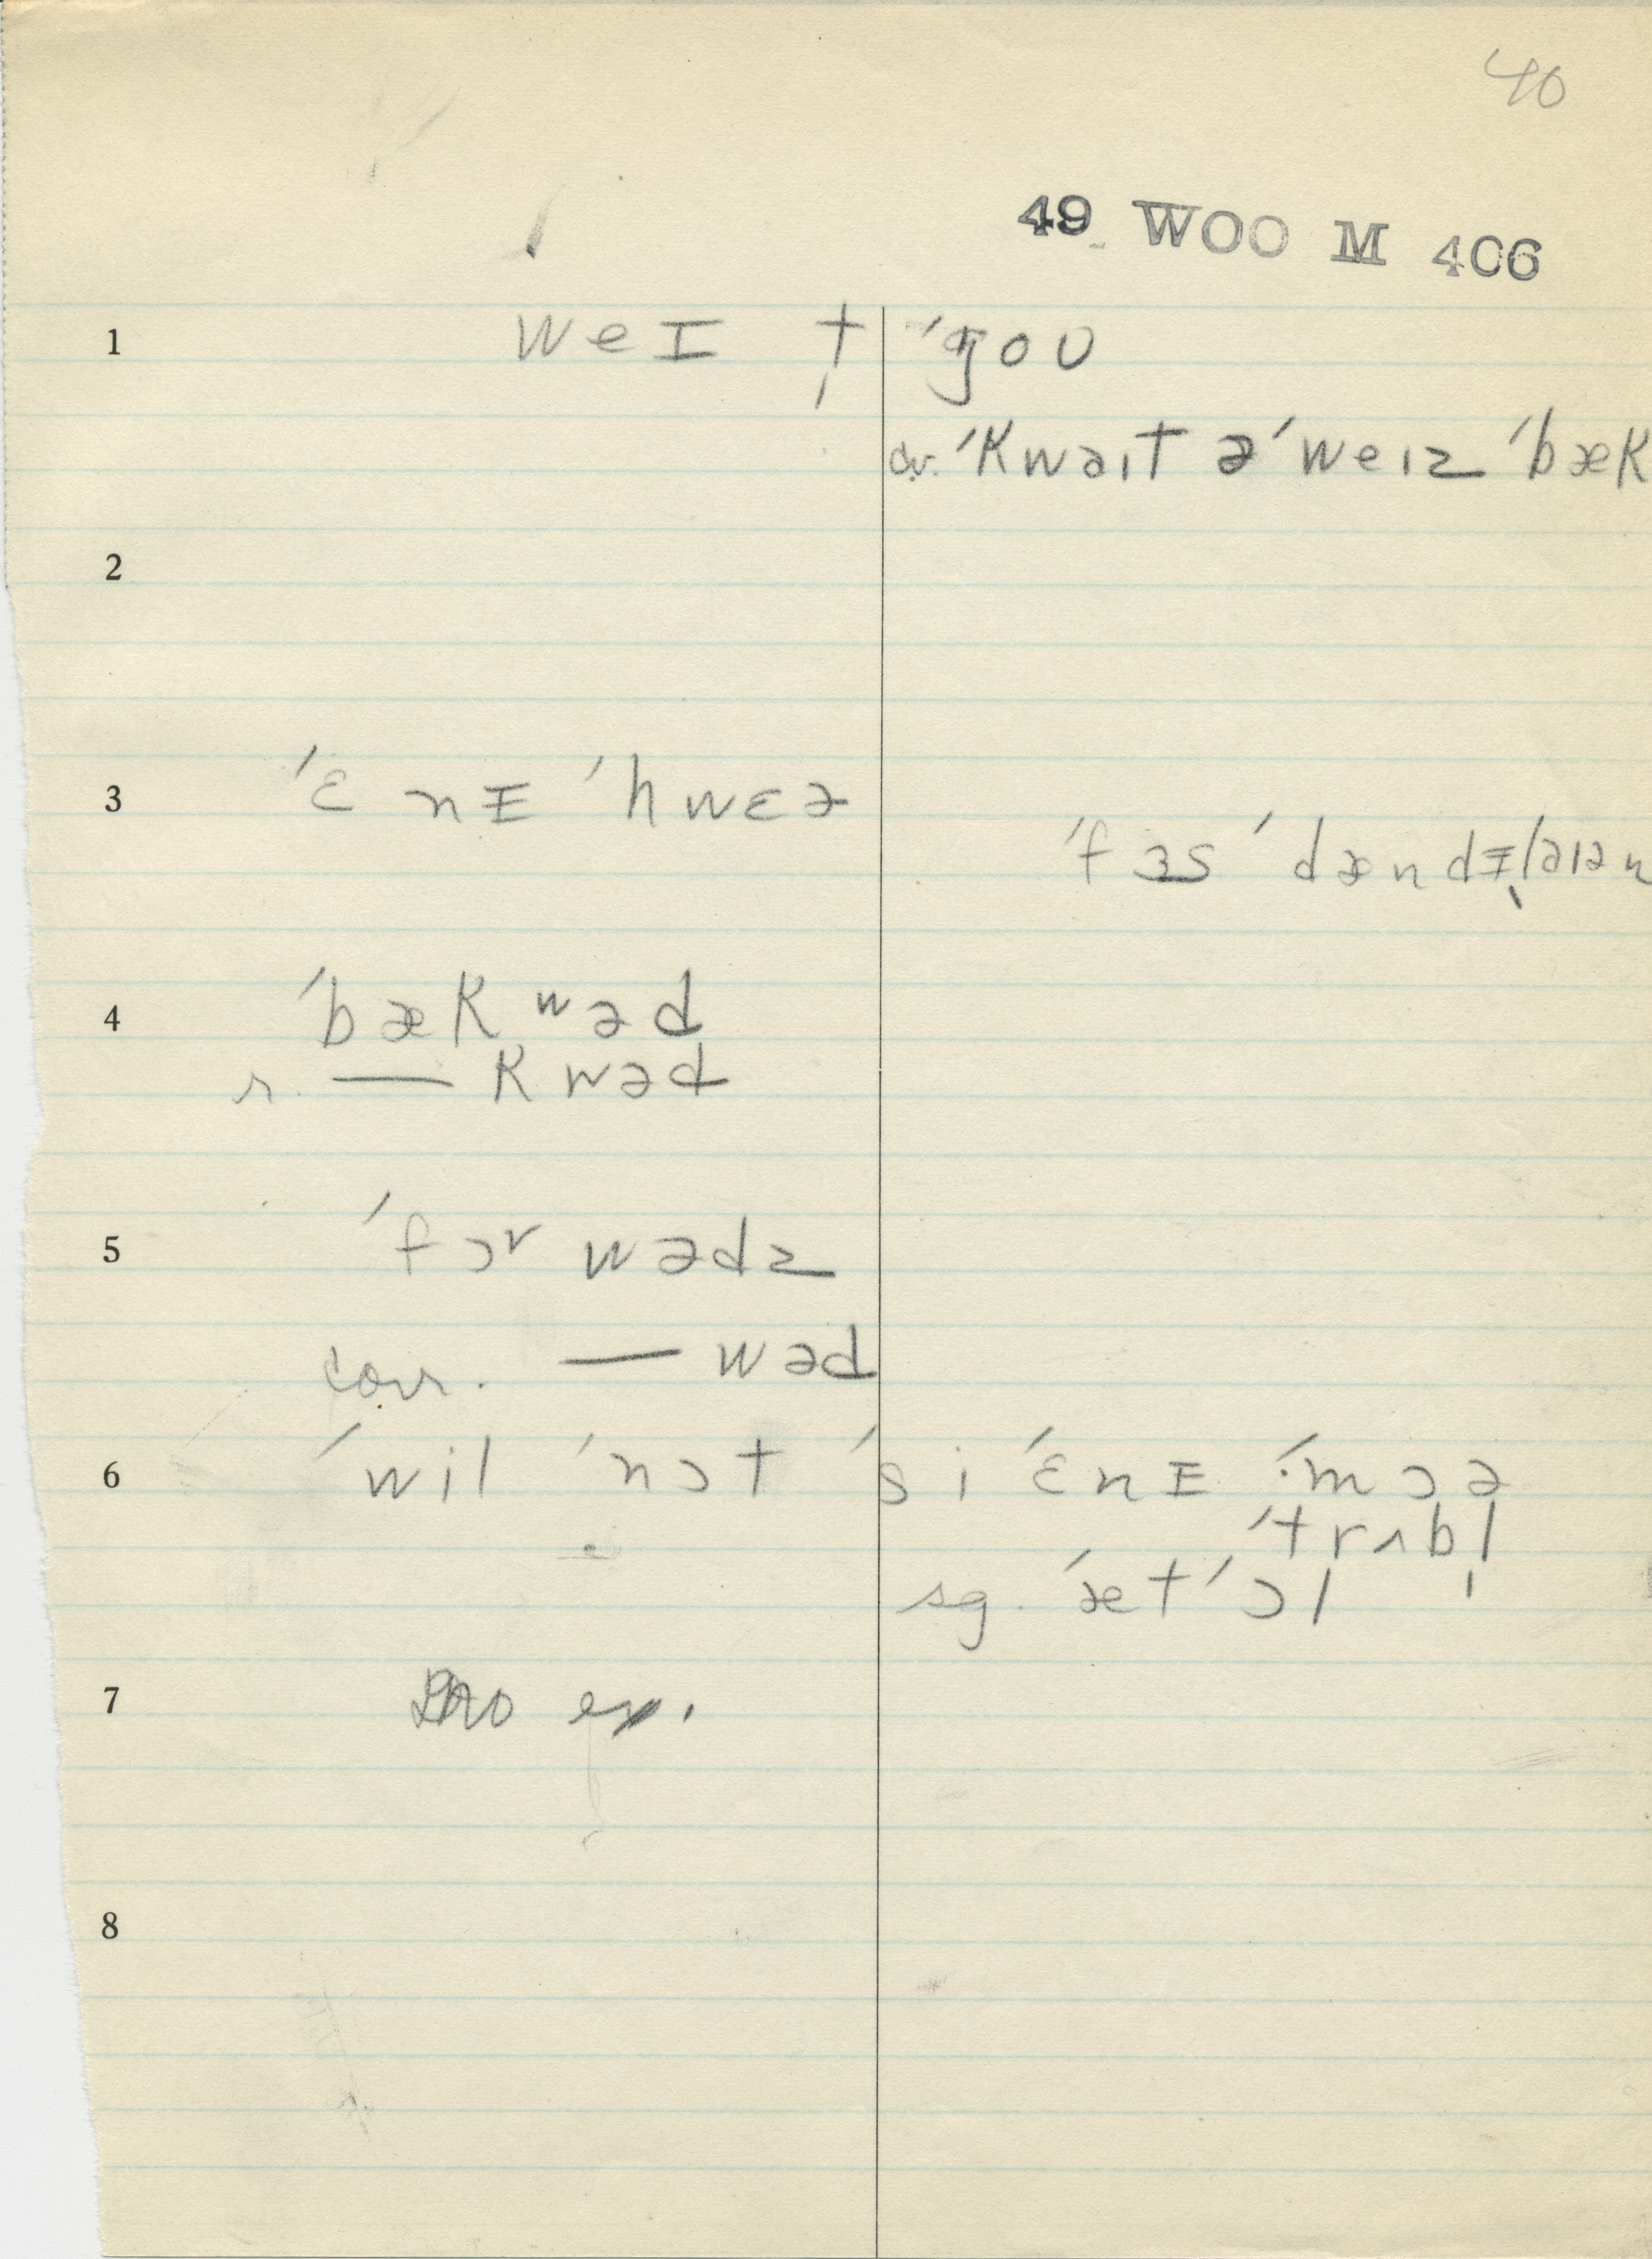 40
49 WOO M 406
1 weɪ t̩ ˈgoʊ
cv. ˈkwaɪt əˈweɪz ˈbæk
2
3 ˈɛnɪ ˈhwɛə
ˈfɜs ˈdændɪˌlaɪən
4 ˈbæk ʷəd
r. — kwəd
5 ˈfɔrwədz
corr. — wəd
6 ˈwil ˈnɔt ˈsi ˈɛnɪ ˈmɔə
ˈtrʌbl̩
sg. ˈætˈɔl
7 no ex.
8